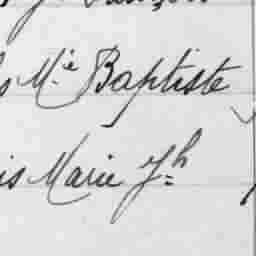 s M.ie Baptiste
is Marie Jh